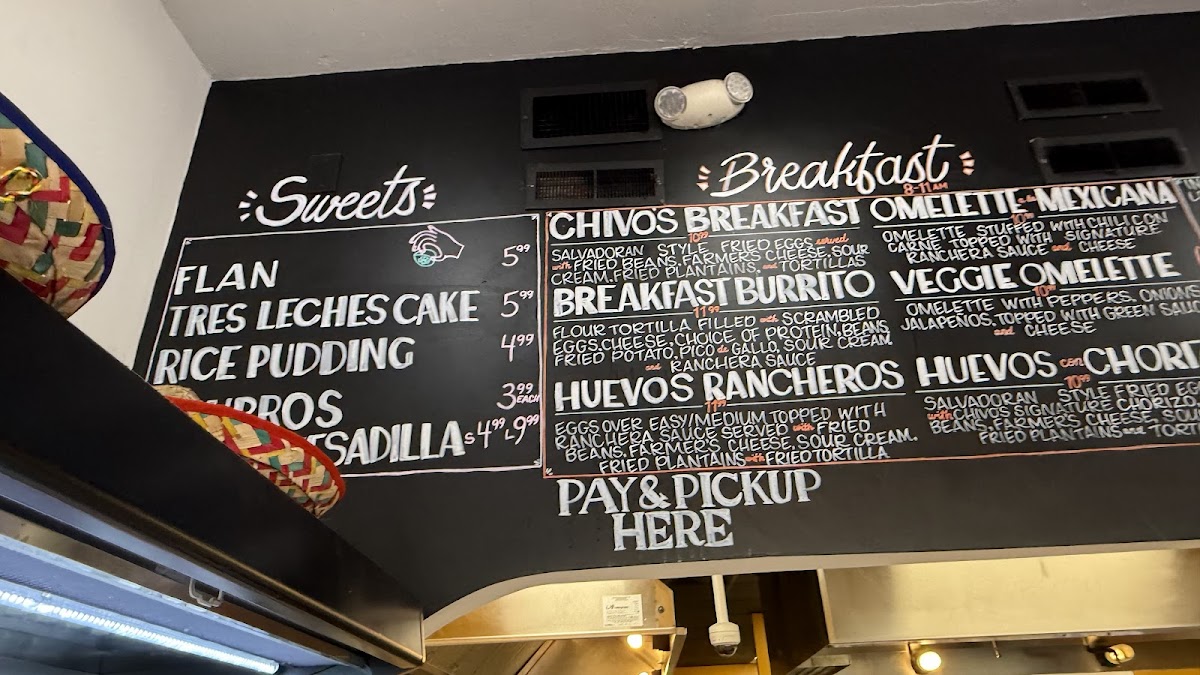 Sweets
FLAN 5.99
TRES LECHES CAKE 5.99
RICE PUDDING 4.99
3.99 EACH
S 4.99 L 9.99
Breakfast
8-11 AM
CHIVOS BREAKFAST
10.99
SALVADORAN STYLE FRIED EGGS served
with FRIED BEANS, FARMERS CHEESE, SOUR
CREAM, FRIED PLANTAINS, and TORTILLAS
BREAKFAST BURRITO
11.99
FLOUR TORTILLA FILLED with SCRAMBLED
EGGS, CHEESE, CHOICE OF PROTEIN, BEANS,
FRIED POTATO, PICO de GALLO, SOUR CREAM
and RANCHERA SAUCE
HUEVOS RANCHEROS
11.99
EGGS OVER EASY/MEDIUM TOPPED WITH
RANCHERA SAUCE SERVED with FRIED
BEANS, FARMERS CHEESE, SOUR CREAM,
FRIED PLANTAINS with FRIED TORTILLA
OMELETTE a la MEXICANA
10.99
OMELETTE STUFFED WITH CHILI CON
CARNE TOPPED WITH SIGNATURE
RANCHERA SAUCE and CHEESE
VEGGIE OMELETTE
10.99
OMELETTE WITH PEPPERS, ONIONS
JALAPEÑOS, TOPPED WITH GREEN
and CHEESE
HUEVOS con
10.99
SALVADORAN STYLE FRIED
with CHIVOS SIGNATURE CHORIZO
BEANS, FARMERS CHEESE,
FRIED PLANTAINS and
PAY & PICKUP
HERE